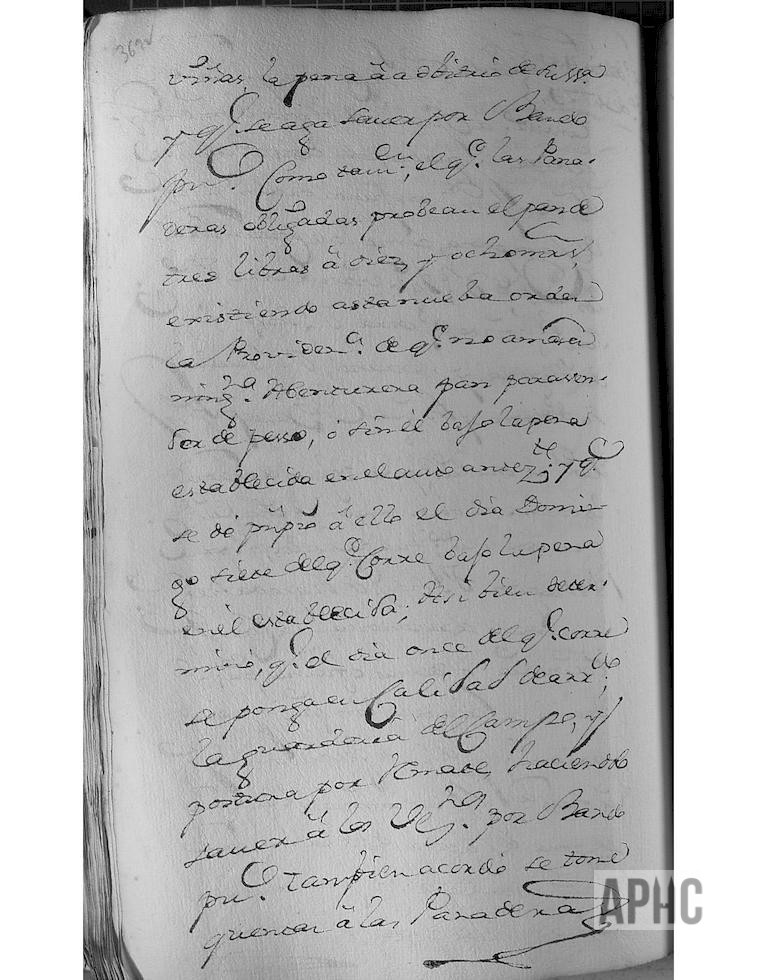 369v
viñas, la pena â adbitrio de su ssª
y q.e se aga saver por Bando
pu.co Como tamvi.en, el q.e las Pana-
deras obligadas probean el pan de
tres libras â diez y ocho mrs,
existiendo asta nueba orden
la Providen.ca de q.e no amasa
ning.na Abenturera pan para ven-
der de pesso, ó sin el bajo la pena
establecida en el auto antez.te y q.e
se dé prinpio â ello el dia Domin-
go siete del q.e Corre bajo la pena
en él establecida; Asi bien deter-
minó, q.e el dia once del q.e corre
se ponga en Calidad de arr.do
la guarderia del Campo, y
postura por Remate, haciendolo
saver â los Vez.nos por Bando
pu.co tanpien acordó se tome
quenta â las Panaderas
APHC